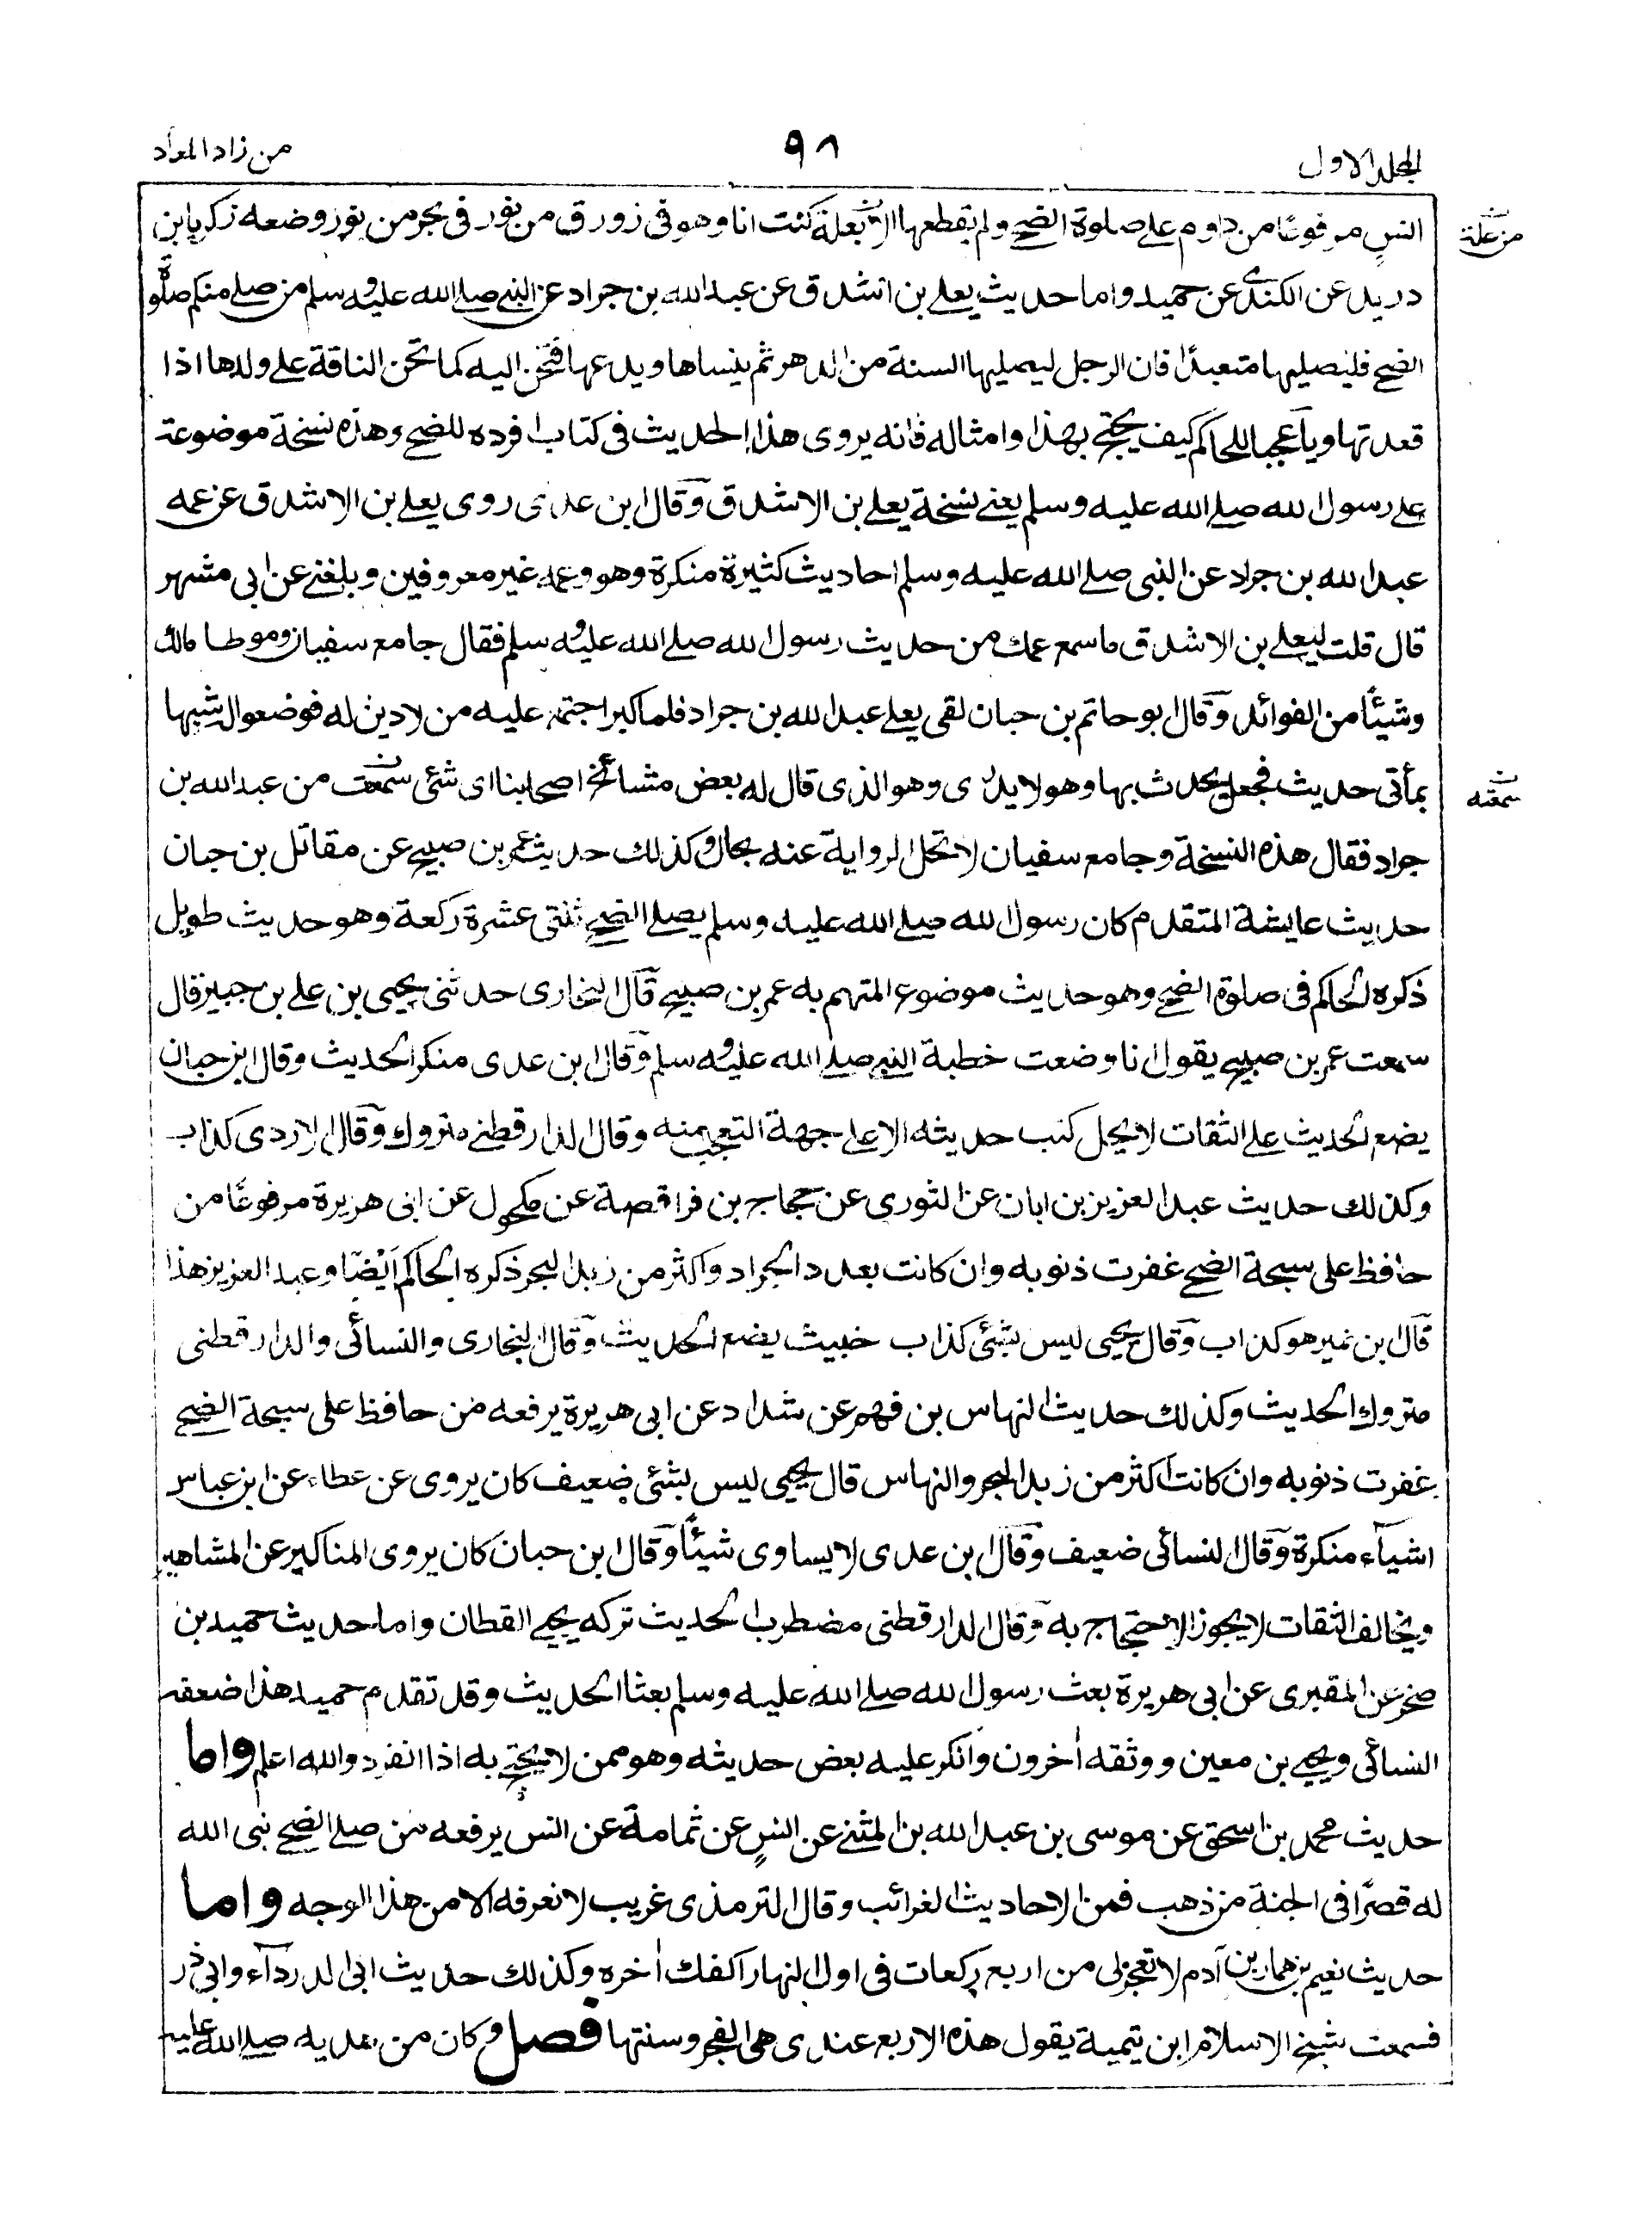 المجلد الاول
٩٨
من زاد المعاد
انس مرفوعًا من داوم على صلوة الضحى ولم يقطعها الا بعلة كنت انا وهو فى زورق من نور فى بحر من نور وضعه زكريا بن
من علة
دريد عن الكندى عن حميد واما حديث يعلى بن اشدق عن عبد الله بن جراد عن النبى صلى الله عليه وسلم من صلى منكم صلوة
الضحى فليصليها متعبدًا فان الرجل ليصليها السنة من الدهر ثم ينساها ويدعها فتحن اليه كما تحن الناقة على ولدها اذا
فعدتها ويا عجبا للحاكم كيف يحتج بهذا وامثاله فانه يروى هذا الحديث فى كتاب افرده للضحى وهذه نسخة موضوعة
على رسول الله صلى الله عليه وسلم يعنى نسخة يعلى بن الاشدق وقال ابن عدى روى يعلى بن الاشدق عن عمه
عبد الله بن جراد عن النبى صلى الله عليه وسلم احاديث كثيرة منكرة وهو وعمه غير معروفين وبلغنى عن ابى مشهر
قال قلت ليعلى بن الاشدق ما سمع عمك من حديث رسول الله صلى الله عليه وسلم فقال جامع سفيان وموطا مالك
وشيئًا من الفوائد وقال ابو حاتم بن حبان لقى يعلى عبد الله بن جراد فلما كبر اجتمع عليه من لا دين له فوضعوا له شبيها
بمأتى حديث فجعل يحدث بها وهو لا يدرى وهو الذى قال له بعض مشائخ اصحابنا اى شئى سمعت من عبد الله بن
سمعته
جراد فقال هذه النسخة وجامع سفيان لا تحل الرواية عنه بحال وكذلك حديث عمر بن صبيح عن مقاتل بن حبان
حديث عايشة المتقدم كان رسول الله صلى الله عليه وسلم يصلى الضحى ثنتى عشرة ركعة وهو حديث طويل
ذكره الحاكم فى صلوة الضحى وهو حديث موضوع المتهم به عمر بن صبيح قال البخارى حدثنى يحيى بن على بن جبير قال
سمعت عمر بن صبيح يقول انا وضعت خطبة النبى صلى الله عليه وسلم وقال ابن عدى منكر الحديث وقال ابن حبان
يضع الحديث على الثقات لا يحل كتب حديثه الا على جهة التعجب منه وقال الدارقطنى متروك وقال الازدى كذاب
وكذلك حديث عبد العزيز بن ابان عن الثورى عن حجاج بن فرافصة عن مكحول عن ابى هريرة مرفوعًا من
حافظ على سبحة الضحى غفرت ذنوبه وان كانت بعدد الجراد واكثر من زبد البحر ذكره الحاكم اَيْضًا وعبد العزيز هذا
قال ابن نمير هو كذاب وقال يحيى ليس بشئى كذاب خبيث يضع الحديث وقال البخارى والنسائى والدارقطنى
متروك الحديث وكذلك حديث النهاس بن فهم عن شداد عن ابى هريرة يرفعه من حافظ على سبحة الضحى
غفرت ذنوبه وان كانت اكثر من زبد البحر والنهاس قال يحيى ليس بشئى ضعيف كان يروى عن عطاء عن ابن عباس
اشياء منكرة وقال النسائى ضعيف وقال ابن عدى لا يساوى شيئًا وقال ابن حبان كان يروى المناكير عن المشاهير
ويخالف الثقات لا يجوز الاحتجاج به وقال الدارقطنى مضطرب الحديث تركه يحيى القطان واما حديث حميد بن
صخر عن المقبرى عن ابى هريرة بعث رسول الله صلى الله عليه وسلم بعثا الحديث وقد تقدم حميد هذا ضعفه
النسائى ويحيى بن معين ووثقه اٰخرون وانكر عليه بعض حديثه وهو ممن لا يحتج به اذا انفرد والله اعلم واما
حديث محمد بن اسحق عن موسى بن عبد الله بن المثنى عن انس عن ثمامة عن انس يرفعه من صلى الضحى بنى الله
له قصرًا فى الجنة من ذهب فمن الاحاديث الغرائب وقال الترمذى غريب لا نعرفه الا من هذا الوجه واما
حديث نعيم بن همار ابن آدم لا تعجز لى من اربع ركعات فى اول النهار اكفك اٰخره وكذلك حديث ابى الدرداء وابى ذر
فسمعت شيخ الاسلام ابن تيمية يقول هذه الاربع عندى هى الفجر وسنتها فصل وكان من هديه صلى الله عليه